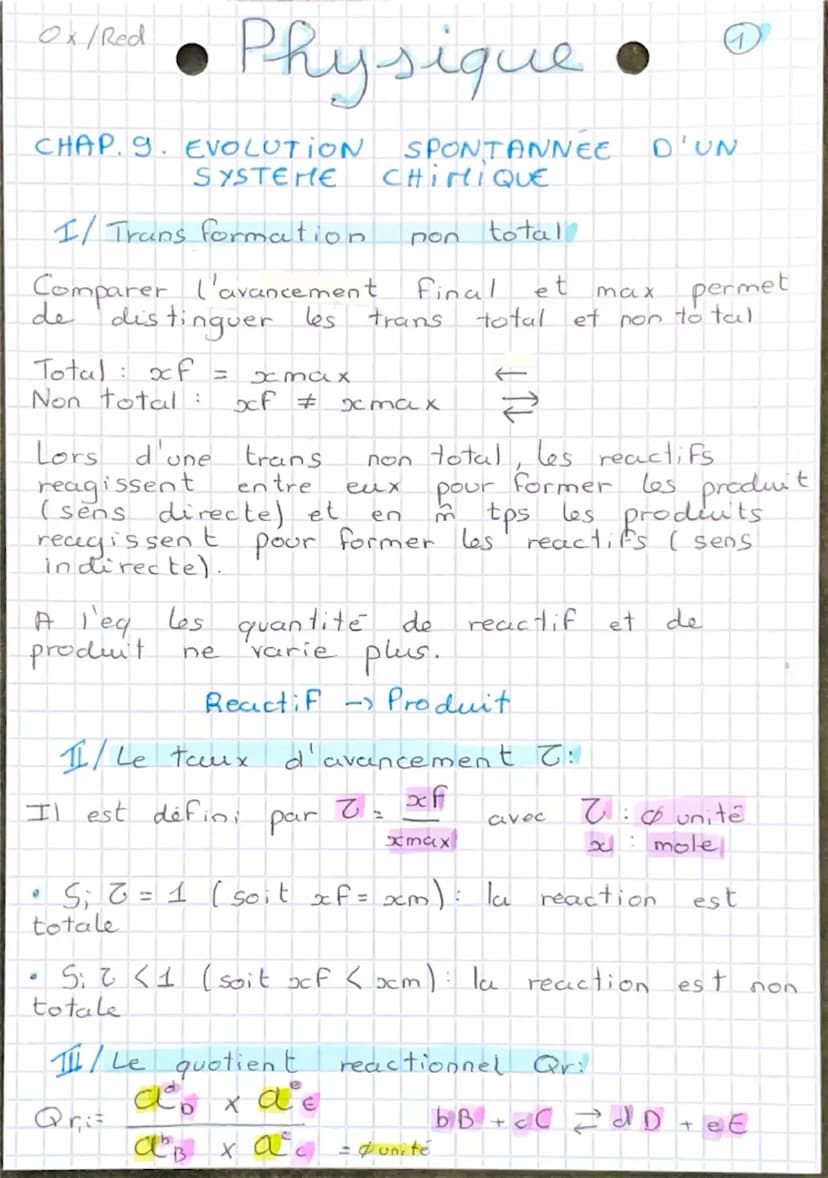 Ox/Red
• Physique •
1
CHAP.9. EVOLUTION SPONTANNÉE D'UN
SYSTEME CHIMIQUE
I/ Transformation non total
Comparer l'avancement final et max permet
de distinguer les trans total et non total
Total : xf = xmax ←
Non total : xf ≠ xmax ⇄
Lors d'une trans non total, les reactifs
reagissent entre eux pour former les produit
(sens directe) et en m̂ tps les produits
reagissent pour former les reactifs (sens
indirecte).
A l'eq les quantité de reactif et de
produit ne varie plus.
Reactif -> Produit
II/ Le taux d'avancement τ:
Il est défini par τ = xf / xmax avec τ : ∅ unité
x : mole
• Si τ = 1 (soit xf = xm) : la reaction est
totale
• Si τ < 1 (soit xf < xm) : la reaction est non
totale
III/ Le quotient reactionnel Qr:
Qr,i = a^d_D x a^e_E / a^b_B x a^c_C = ∅ unité
bB + cC ⇄ dD + eE